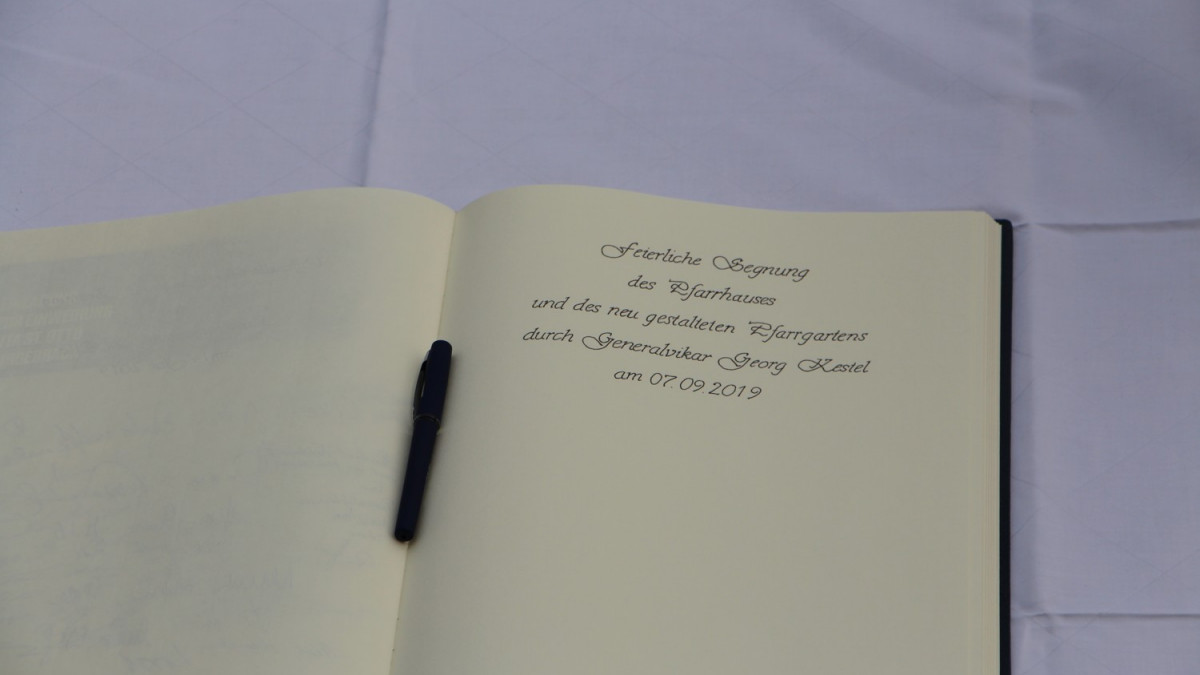 Feierliche Segnung
des Pfarrhauses
und des neu gestalteten Pfarrgartens
durch Generalvikar Georg Kestel
am 07.09.2019